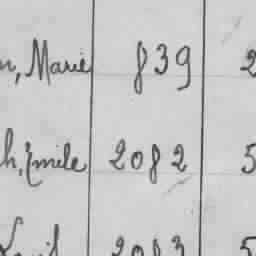 n, Marie 839 2
h, Emile 2082 5
2083 5